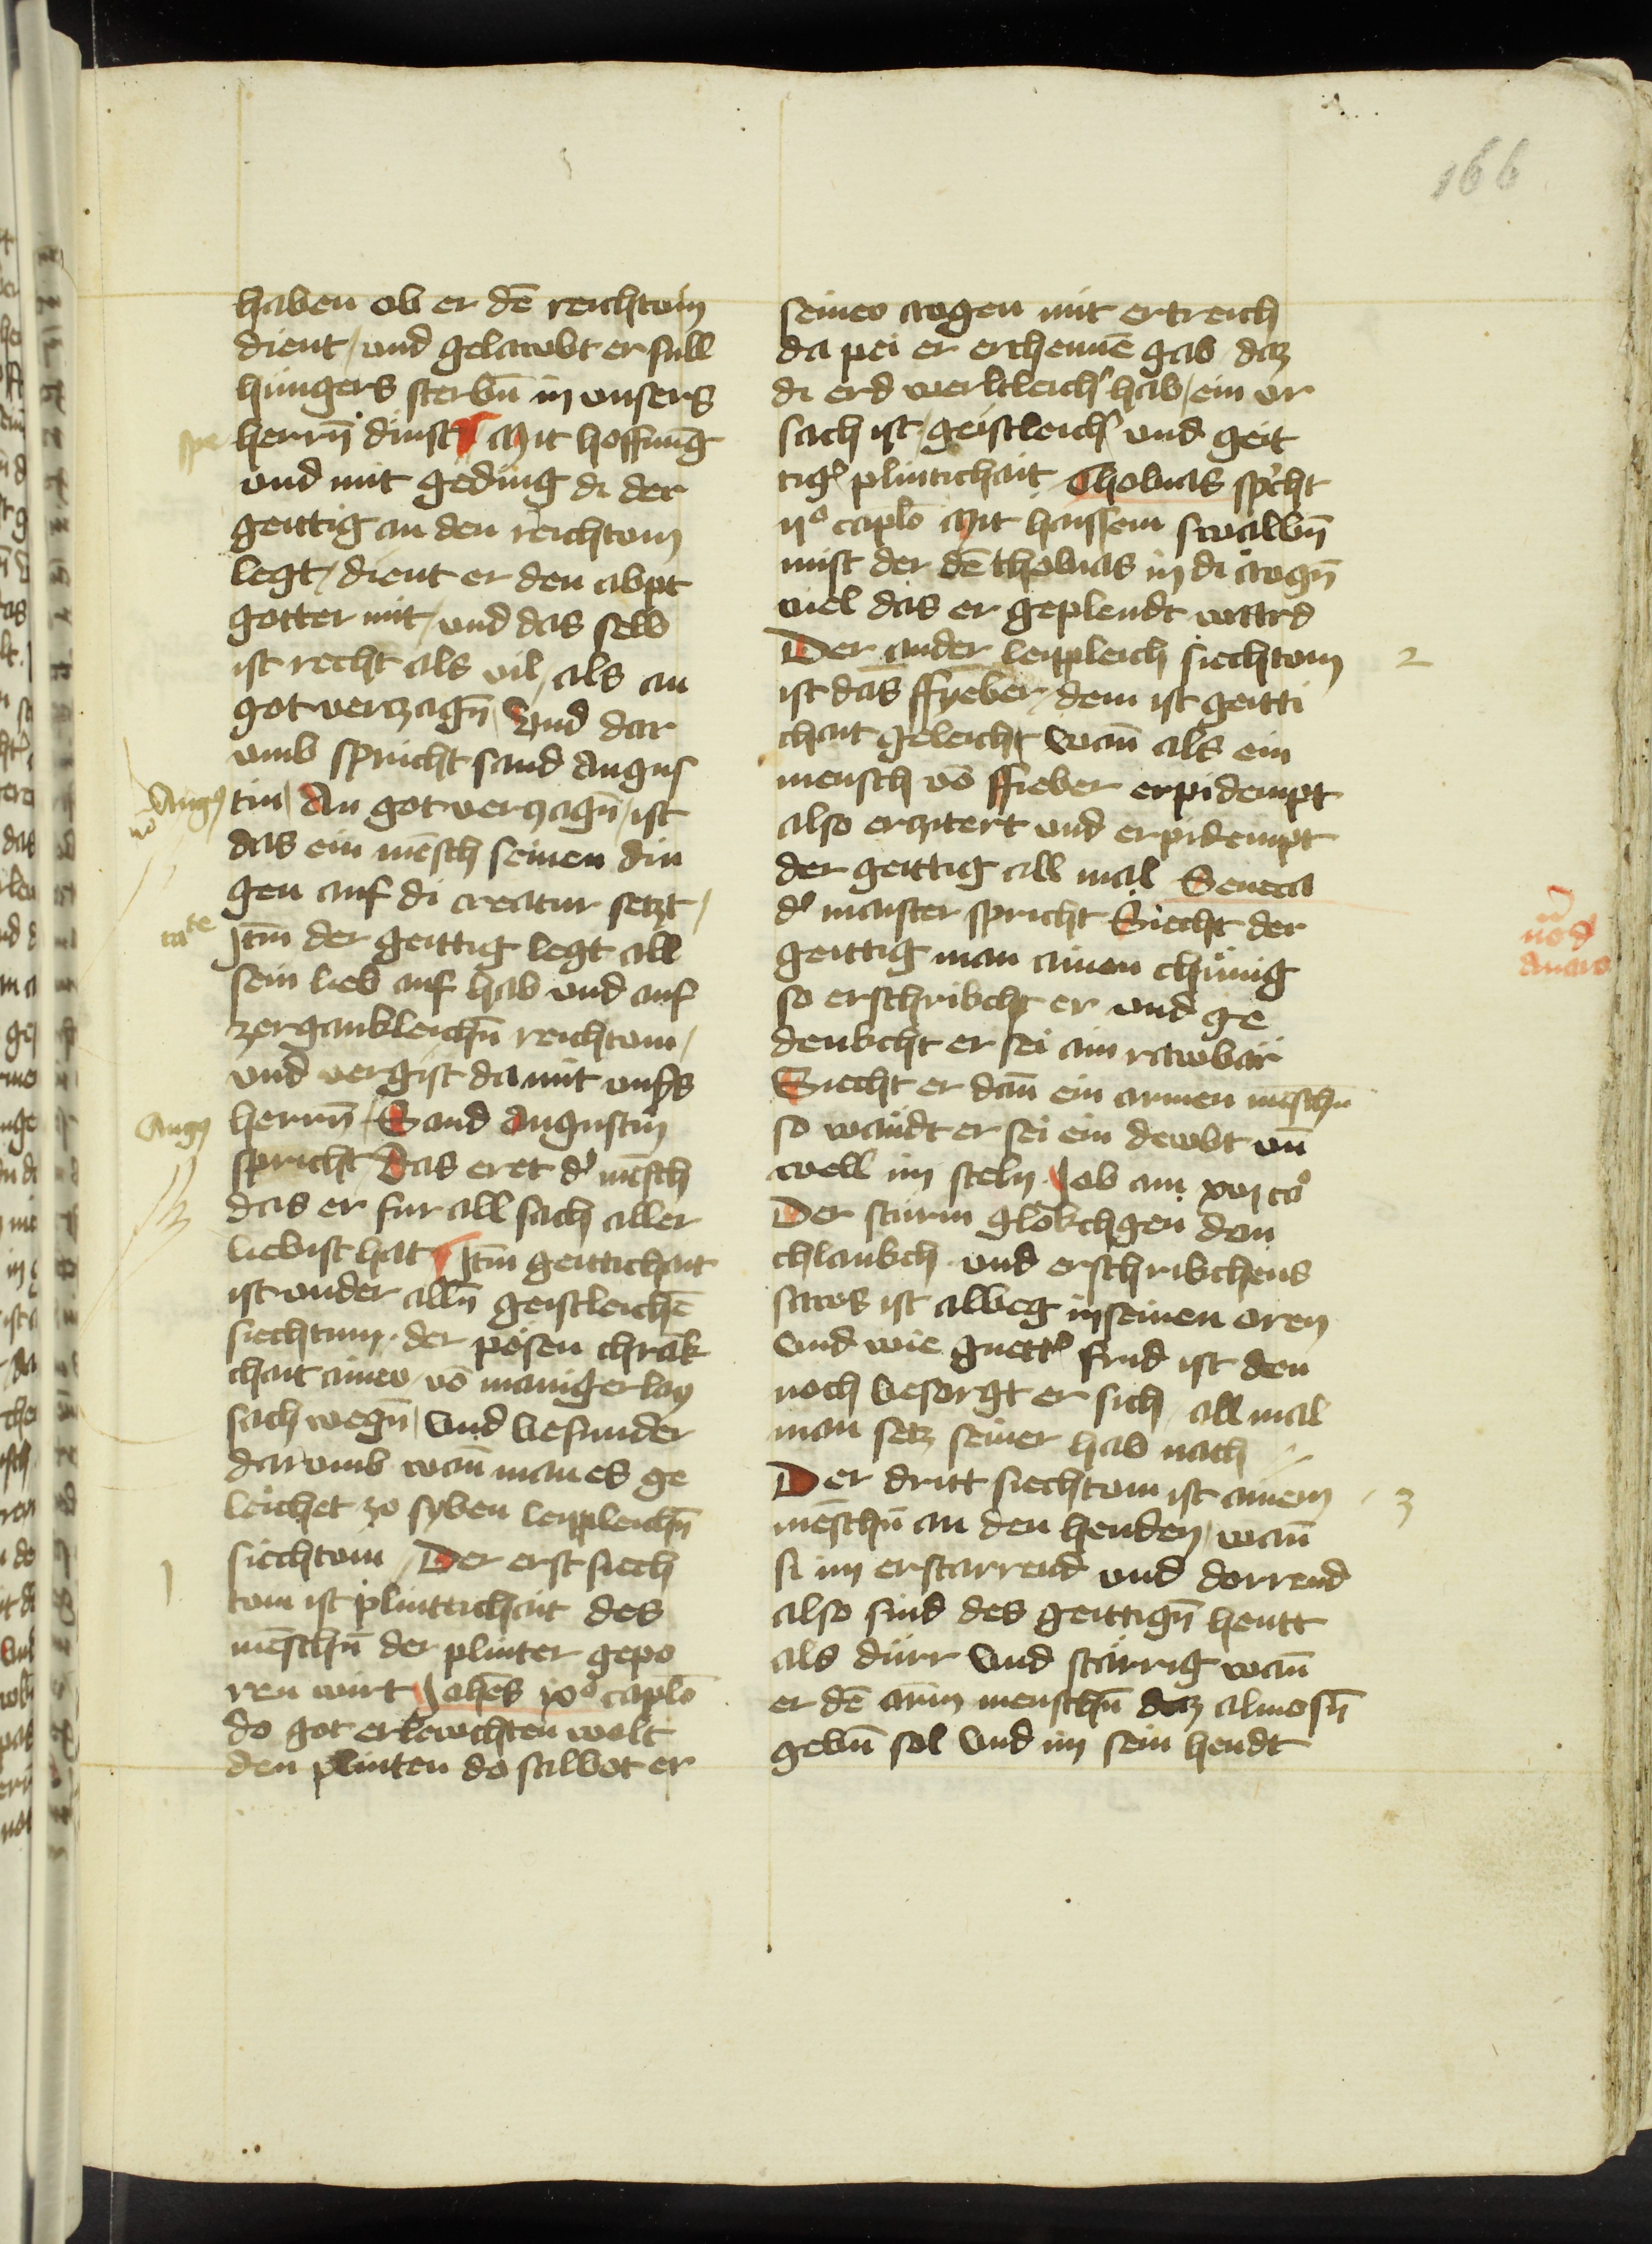 166
haben ob er dē reichtom
dient / und gelawbt er sull
hungers sterbn̄ in unsers
herrn̄ dinst Mit hoffnūg
und mit geding di der
geittig an den reichtom
legt / dient er den abpt
gotter mit / und das selb
ist recht als vil / als an
got verczagn̄ Und dar
umb spricht sand Augus
tin / An got verczagn̄ / ist
das ein mēsch seinen din
gen auf di creatur setzt /
Jtm̄ der geittig legt all
sein lieb auf hab und auf
zergankleichn̄ reichtom /
und vergist da mit unsˢs
herrn̄ / Sand Augustin
spricht Das eret dˢ mēsch
das er fur all sach aller
liebist hat Jtm̄ geittichait
ist under alln̄ geistleichē
siechtum · der pösen chrāk
chait aineu / vō manigerlay
sach wegn̄ / Und besunder
darumb wan̄ man es ge
leichet zo syben leippleichn̄
siechtom / Der erst siech
tom ist plintichait des
mēschn̄ der plinter gepo
ren wirt Johēs ixᵒ caplō
do got erlewchten wolt
den plinten do salbot er
seineu awgen mit ertreich
da pei er erchennē gab daz
di erd werltleichˢ hab / ein ur
sach ist / geistleichˢ und geit
tigˢ plintichait Thobias spˢcht
ijᵒ caplō Mit haissem swalbn̄
mist der dē thobias in di awgn̄
viel das er geplendt ward
Der ander leippleich siechtom
ist das ffyeber / dem ist geitti
chait geleicht Wan̄ als ein
mensch vō ffieber erpidempt
also erzitert und erpidempt
der geittig all mal Seneca
dˢ maister spricht Siecht der
geittig man ainen chünig
so erschrikcht er und ge
denkcht er sei ain rawbär
Siecht er dan̄ ein armen mēschn̄
so wändt er sei ein dewbt un̄
well im steln Job am xvᵒ cᵒ
Der sturm glökchgen don
chlankch und erschrikchens
saws ist albeg in seinen oren
Und wie guettˢ frid ist den
noch besorgt er sich all mal
man setz seiner hab nach
Der dritt siechtom ist ainem
mēschn̄ an den henden / wan̄
si im erstarrend und dorrend
also sind des geittign̄ hentt
als dürr Und stärrig wan̄
er dē arm̄ menschn̄ daz almosn̄
gebn̄ sol Und im sein hendt
spe
Augˢ
nō
Augˢ
1
2
3